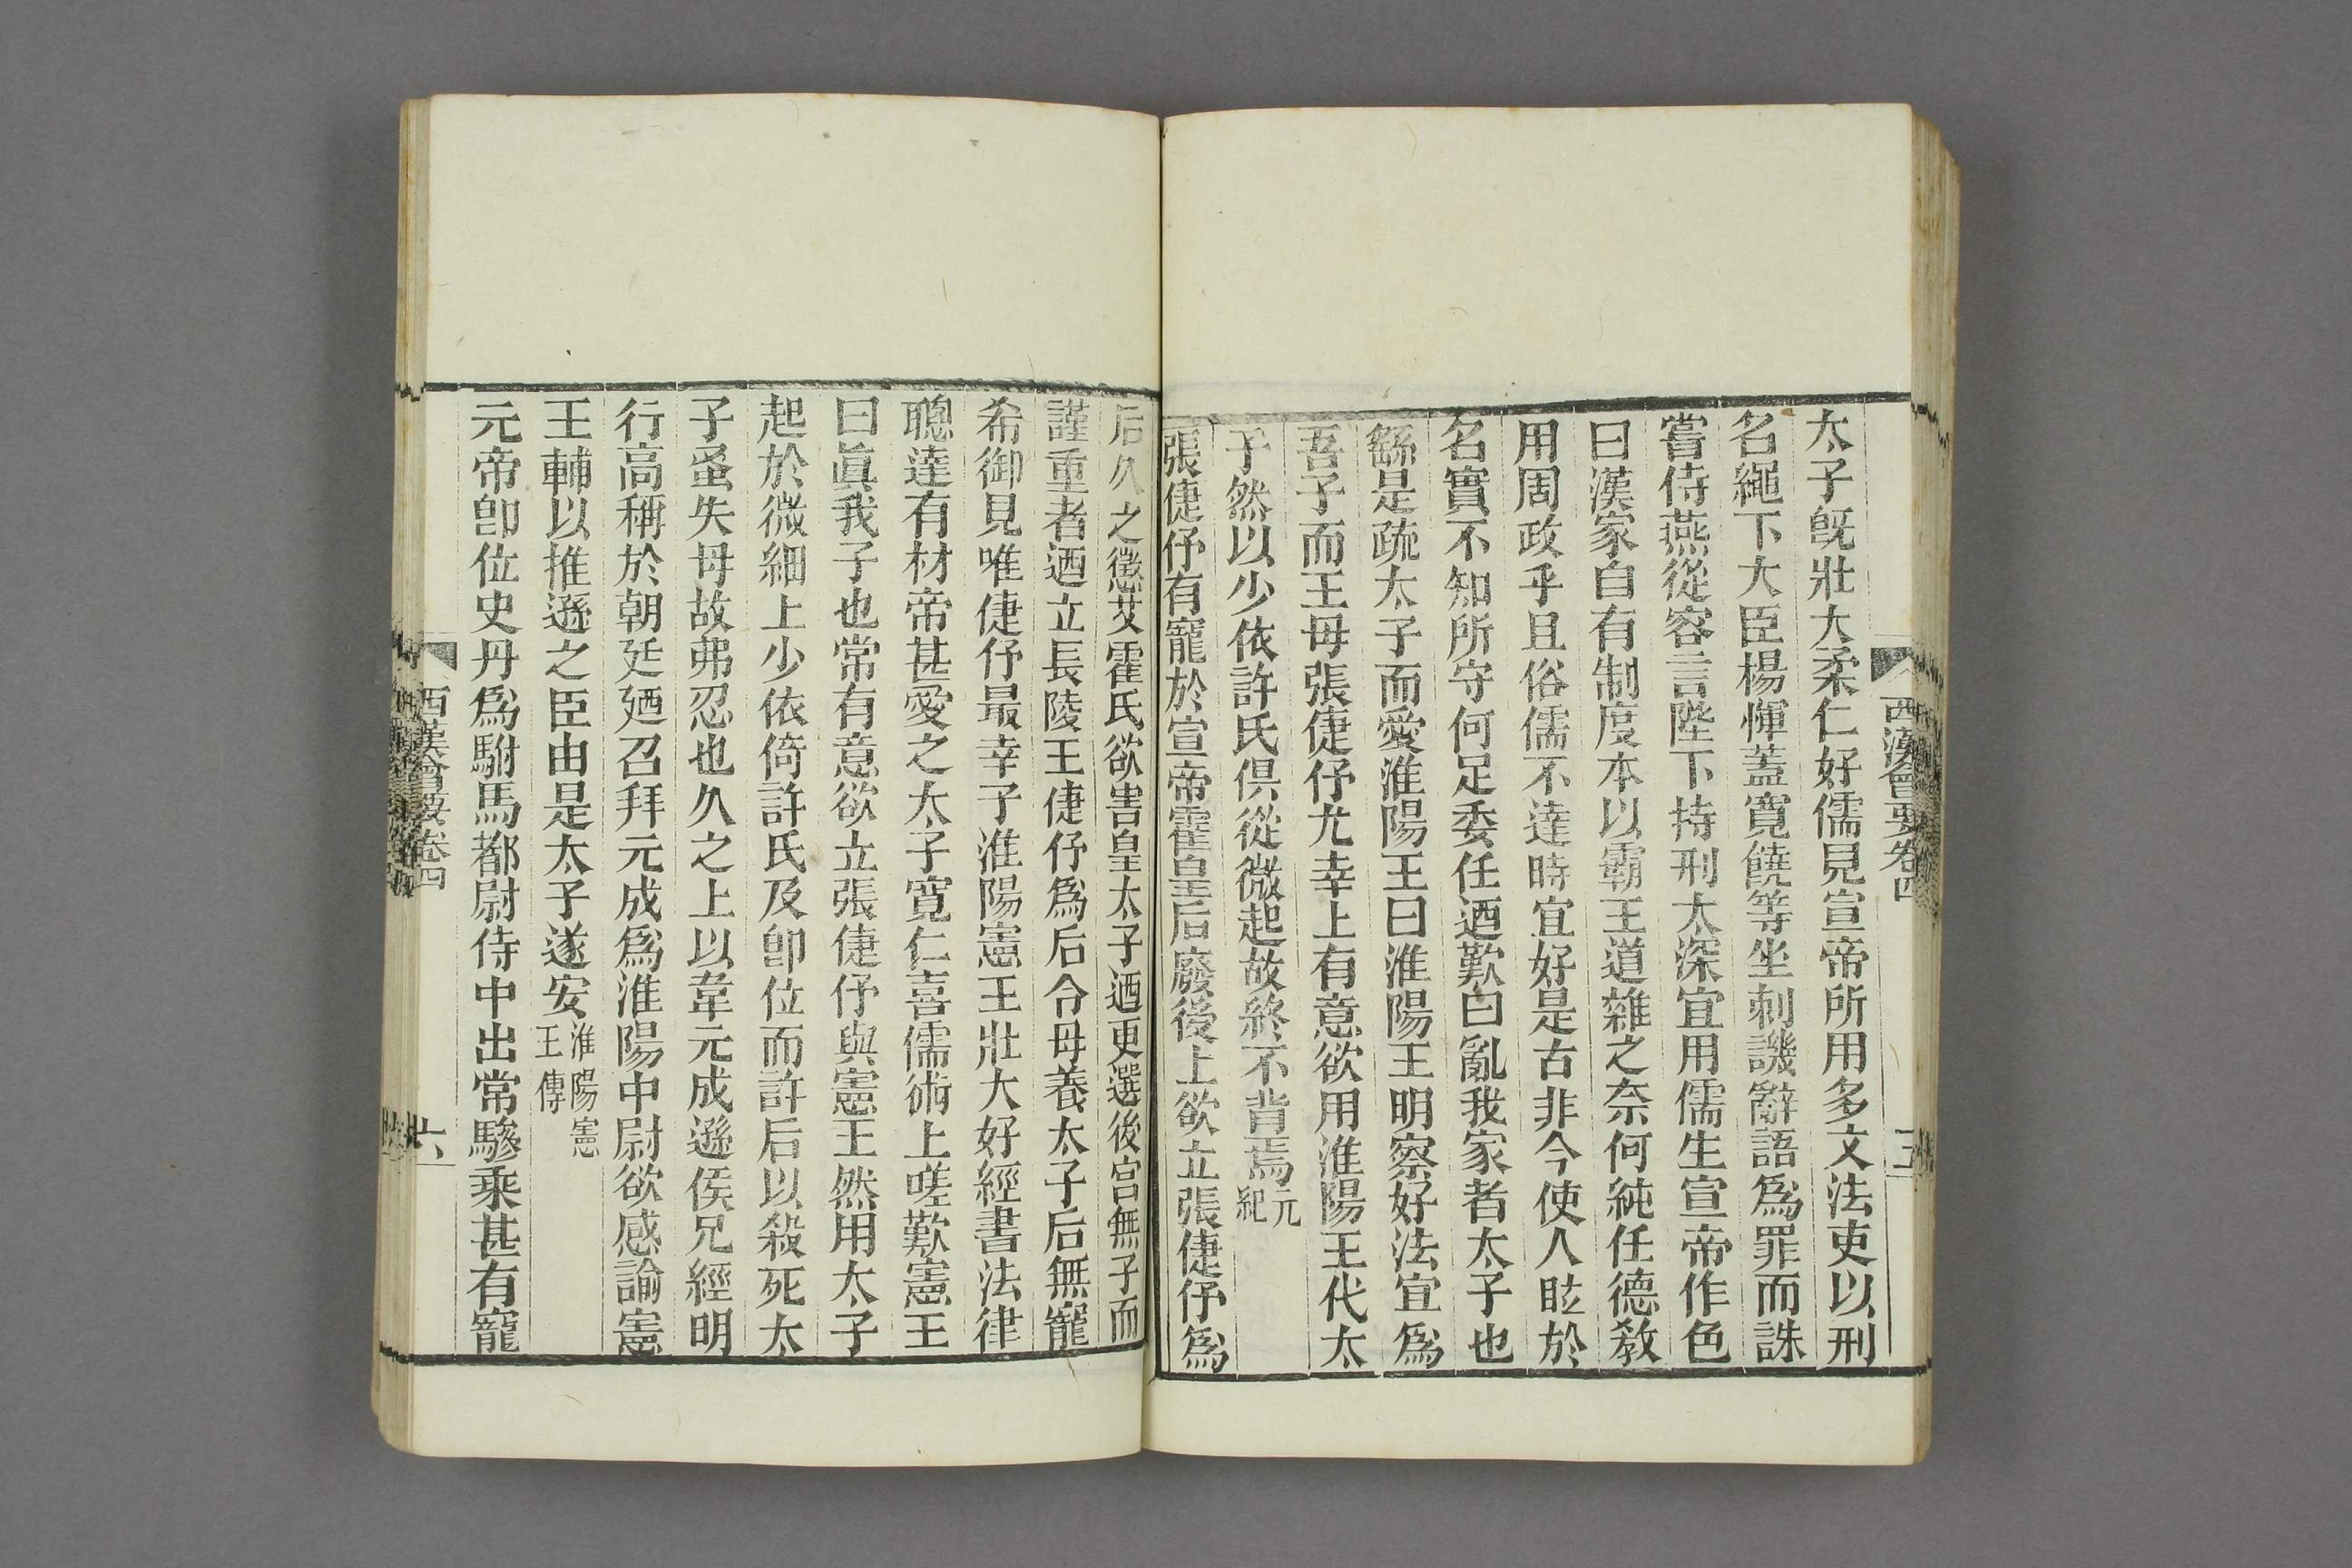 西漢會要卷四
太子旣壯大柔仁好儒見宣帝所用多文法吏以刑
名繩下大臣楊惲蓋寬饒等坐刺譏辭語爲罪而誅
嘗侍燕從容言陛下持刑太深宜用儒生宣帝作色
曰漢家自有制度本以霸王道雜之奈何純任德教
用周政乎且俗儒不達時宜好是古非今使人眩於
名實不知所守何足委任迺歎曰亂我家者太子也
繇是疏太子而愛淮陽王曰淮陽王明察好法宜爲
吾子而王母張倢伃尤幸上有意欲用淮陽王代太
子然以少依許氏俱從微起故終不背焉元紀
張倢伃有寵於宣帝霍皇后廢後上欲立張倢伃爲
后久之懲艾霍氏欲害皇太子迺更選後宮無子而
謹重者迺立長陵王倢伃爲后令母養太子后無寵
希御見唯倢伃最幸子淮陽憲王壯大好經書法律
聰達有材帝甚愛之太子寬仁喜儒術上嗟歎憲王
曰眞我子也常有意欲立張倢伃與憲王然用太子
起於微細上少依倚許氏及卽位而許后以殺死太
子蚤失母故弗忍也久之上以韋元成遜侯兄經明
行高稱於朝廷廼召拜元成爲淮陽中尉欲感諭憲
王輔以推遜之臣由是太子遂安淮陽憲王傳
元帝卽位史丹爲駙馬都尉侍中出常驂乘甚有寵
西漢會要卷四
六